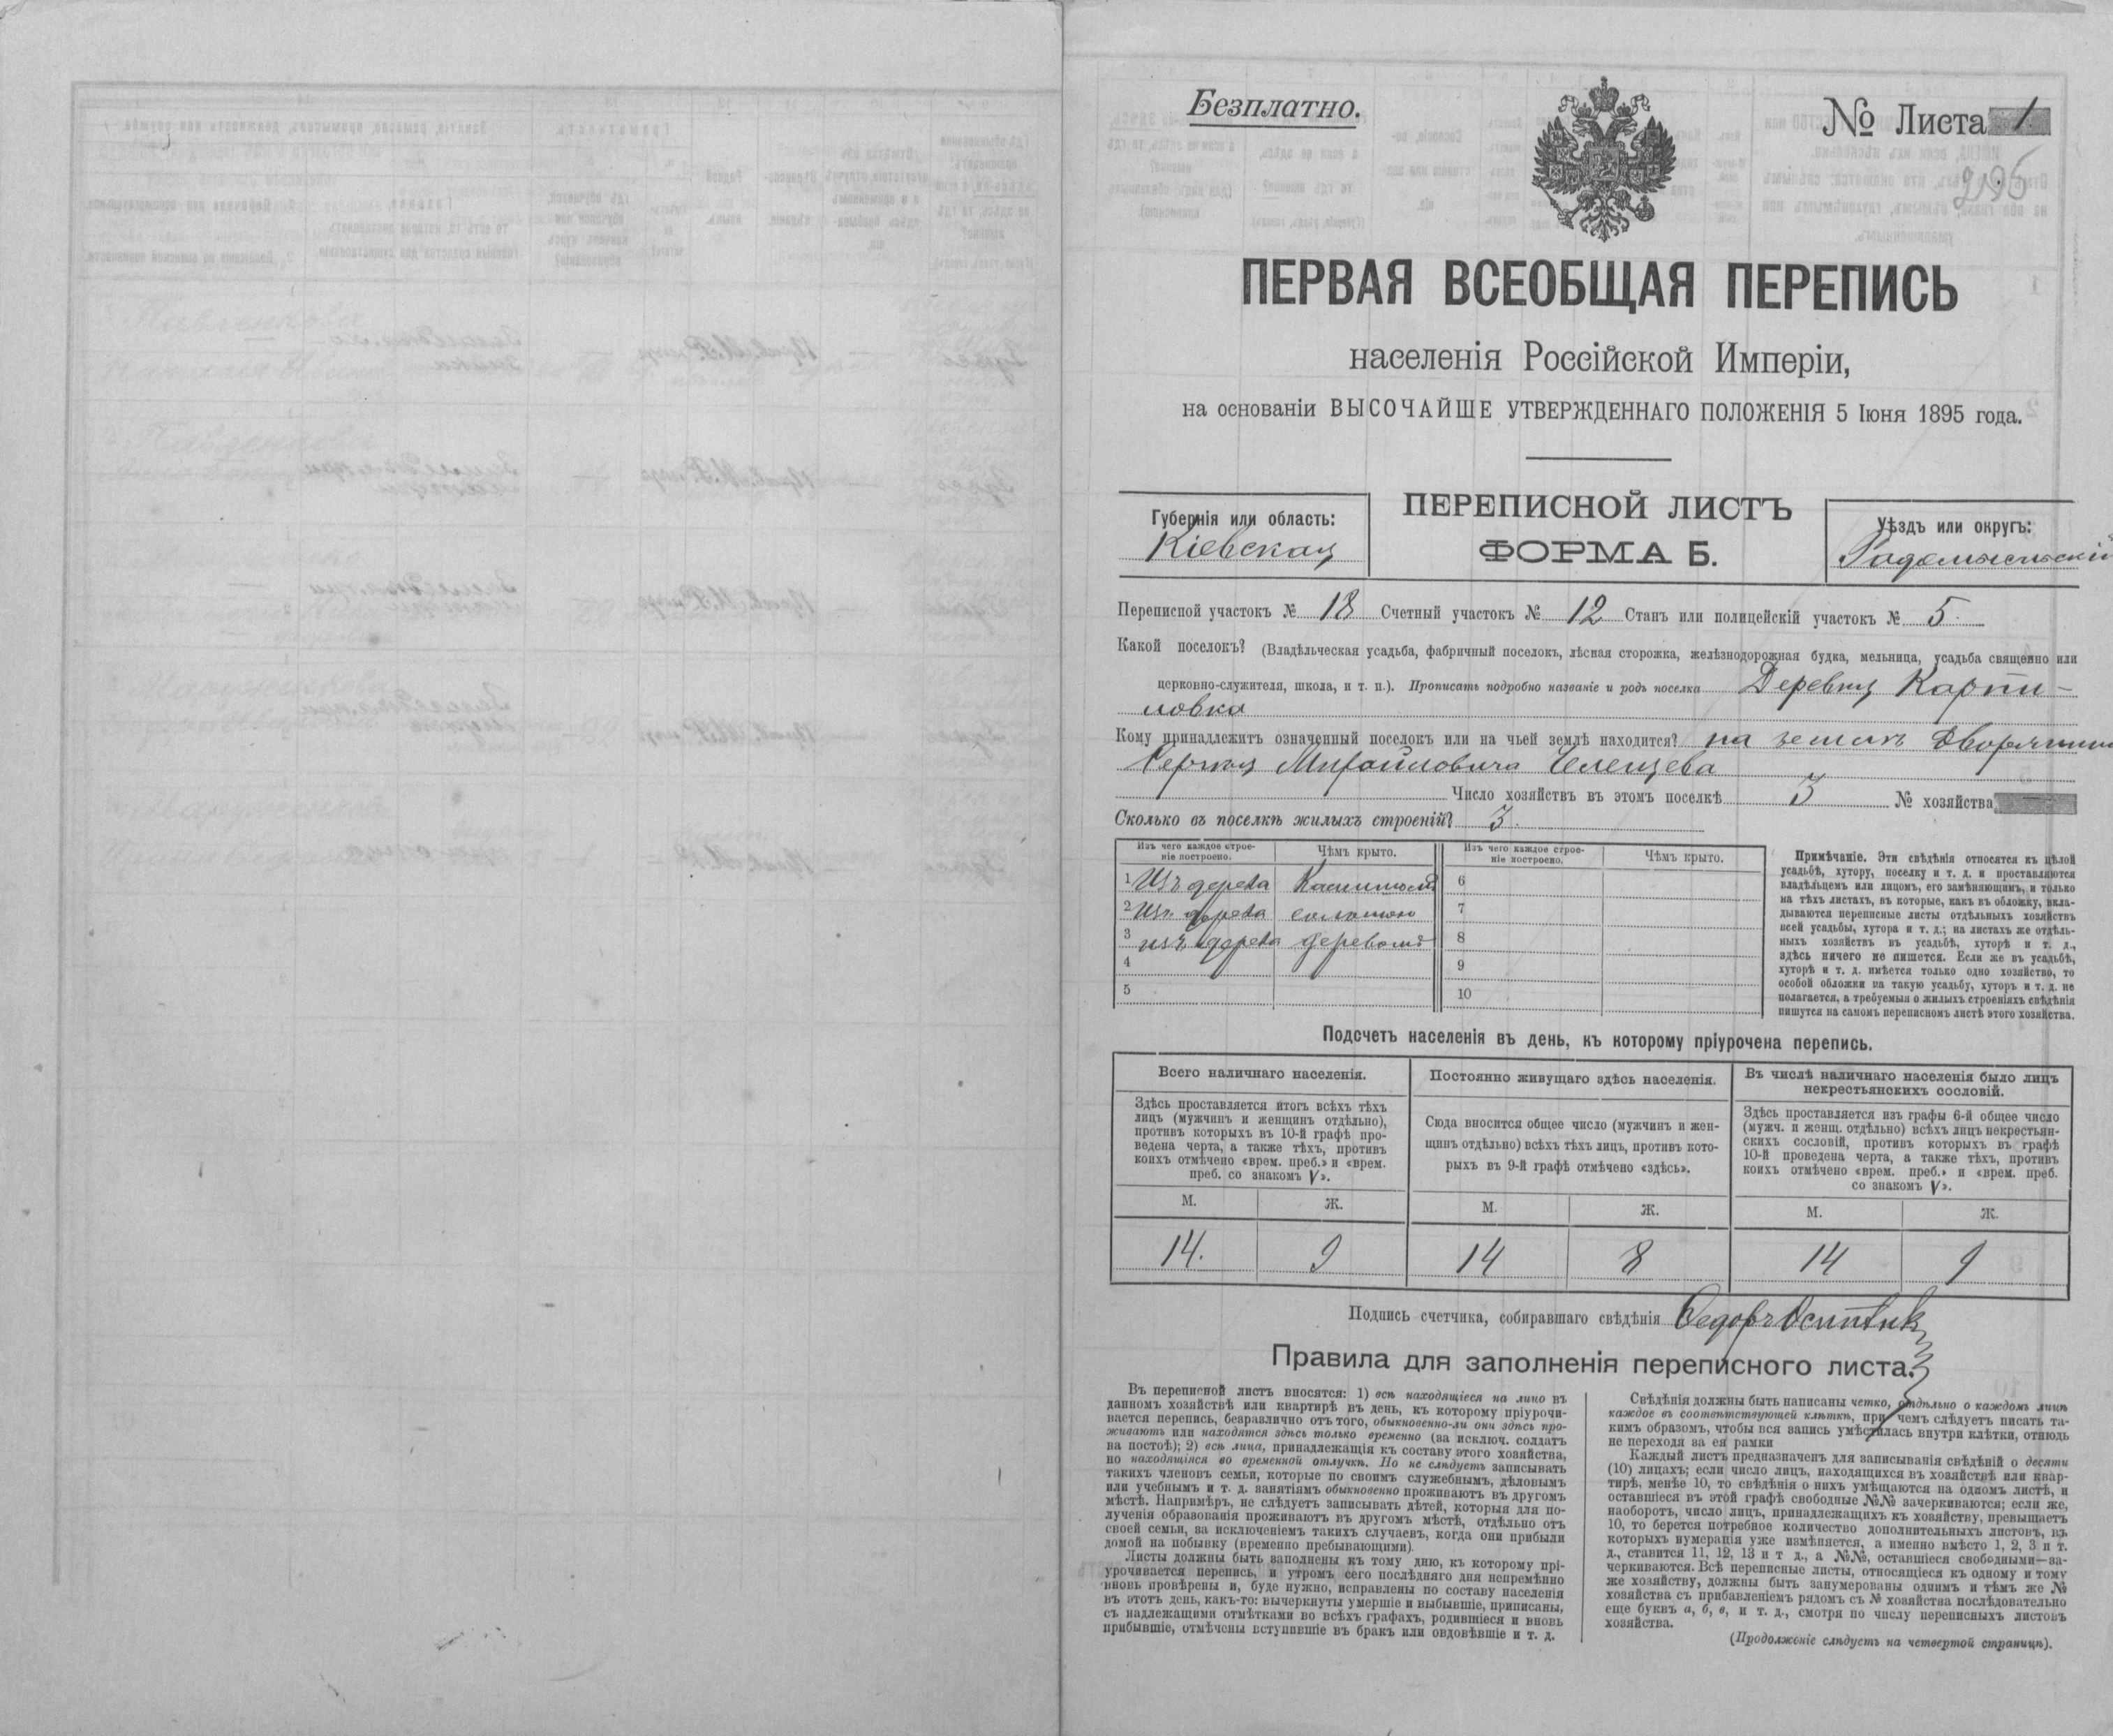 Безплатно.
№ Листа 1
295
ПЕРВАЯ ВСЕОБЩАЯ ПЕРЕПИСЬ
населенія Россійской Имперіи,
на основаніи ВЫСОЧАЙШЕ УТВЕРЖДЕННАГО ПОЛОЖЕНІЯ 5 Іюня 1895 года.
Губернія или область:
Кіевская
ПЕРЕПИСНОЙ ЛИСТЪ
ФОРМА Б.
Уѣздъ или округъ:
Радомысльскій
Переписной участокъ № 18 Счетный участокъ № 12 Станъ или полицейскій участокъ № 5.
Какой поселокъ? (Владѣльческая усадьба, фабричный поселокъ, лѣсная сторожка, желѣзнодорожная будка, мельница, усадьба священно или
церковно-служителя, школа, и т. п.). Прописать подробно названіе и родъ поселка Деревня Карпи-
ловка
Кому принадлежитъ означенный поселокъ или на чьей землѣ находится? на земляхъ Дворянина
Сергѣя Михайловича
Число хозяйствъ въ этомъ поселкѣ 3 № хозяйства
Сколько въ поселкѣ жилыхъ строеній? 3.
Изъ чего каждое строе-
ніе построено.
Чѣмъ крыто.
Изъ чего каждое строе-
ніе построено.
Чѣмъ крыто.
1 Изъ дерева
2 Изъ дерева соломою
3 изъ дерева деревомъ
4
5
6
7
8
9
10
Примѣчаніе. Эти свѣдѣнія относятся къ цѣлой
усадьбѣ, хутору, поселку и т. д. и проставляются
владѣльцемъ или лицомъ, его замѣняющимъ, и только
на тѣхъ листахъ, въ которые, какъ въ обложку, вкла-
дываются переписные листы отдѣльныхъ хозяйствъ
всей усадьбы, хутора и т. д.; на листахъ же отдѣль-
ныхъ хозяйствъ въ усадьбѣ, хуторѣ и т. д.,
здѣсь ничего не пишется. Если же въ усадьбѣ,
хуторѣ и т. д. имѣется только одно хозяйство, то
особой обложки на такую усадьбу, хуторъ и т. д. не
полагается, а требуемыя о жилыхъ строеніяхъ свѣдѣнія
пишутся на самомъ переписномъ листѣ этого хозяйства.
Подсчетъ населенія въ день, къ которому пріурочена перепись.
Всего наличнаго населенія.
Здѣсь проставляется итогъ всѣхъ тѣхъ
лицъ (мужчинъ и женщинъ отдѣльно),
противъ которыхъ въ 10-й графѣ про-
ведена черта, а также тѣхъ, противъ
коихъ отмѣчено «врем. преб.» и «врем.
преб. со знакомъ V».
Постоянно живущаго здѣсь населенія.
Сюда вносится общее число (мужчинъ и жен-
щинъ отдѣльно) всѣхъ тѣхъ лицъ, противъ кото-
рыхъ въ 9-й графѣ отмѣчено «здѣсь».
Въ числѣ наличнаго населенія было лицъ
некрестьянскихъ сословій.
Здѣсь проставляется изъ графы 6-й общее число
(мужч. и женщ. отдѣльно) всѣхъ лицъ некрестьян-
скихъ сословій, противъ которыхъ въ графѣ
10-й проведена черта, а также тѣхъ, противъ
коихъ отмѣчено «врем. преб.» и «врем. преб.
со знакомъ V».
М. Ж. М. Ж. М. Ж.
14. 9 14 8 14 9
Подпись счетчика, собиравшаго свѣдѣнія Ѳедоръ
Правила для заполненія переписного листа.
Въ переписной листъ вносятся: 1) всѣ находящіеся на лицо въ
данномъ хозяйствѣ или квартирѣ въ день, къ которому пріурочи-
вается перепись, безразлично отъ того, обыкновенно-ли они здѣсь про-
живаютъ или находятся здѣсь только временно (за исключ. солдатъ
на постоѣ); 2) всѣ лица, принадлежащія къ составу этого хозяйства,
но находящіяся во временной отлучкѣ. Но не слѣдуетъ записывать
такихъ членовъ семьи, которые по своимъ служебнымъ, дѣловымъ
или учебнымъ и т. д. занятіямъ обыкновенно проживаютъ въ другомъ
мѣстѣ. Напримѣръ, не слѣдуетъ записывать дѣтей, которыя для по-
лученія образованія проживаютъ въ другомъ мѣстѣ, отдѣльно отъ
своей семьи, за исключеніемъ такихъ случаевъ, когда они прибыли
домой на побывку (временно пребывающими).
Листы должны быть заполнены къ тому дню, къ которому прі-
урочивается перепись, и утромъ сего послѣдняго дня непремѣнно
вновь провѣрены и, буде нужно, исправлены по составу населенія
въ этотъ день, какъ-то: вычеркнуты умершіе и выбывшіе, приписаны,
съ надлежащими отмѣтками во всѣхъ графахъ, родившіеся и вновь
прибывшіе, отмѣчены вступившіе въ бракъ или овдовѣвшіе и т. д.
Свѣдѣнія должны быть написаны четко, отдѣльно о каждомъ лицѣ
каждое въ соотвѣтствующей клѣткѣ, при чемъ слѣдуетъ писать та-
кимъ образомъ, чтобы вся запись умѣстилась внутри клѣтки, отнюдь
не переходя за ея рамки
Каждый листъ предназначенъ для записыванія свѣдѣній о десяти
(10) лицахъ; если число лицъ, находящихся въ хозяйствѣ или квар-
тирѣ, менѣе 10, то свѣдѣнія о нихъ умѣщаются на одномъ листѣ, и
оставшіеся въ этой графѣ свободные №№ зачеркиваются; если же,
наоборотъ, число лицъ, принадлежащихъ къ хозяйству, превышаетъ
10, то берется потребное количество дополнительныхъ листовъ, въ
которыхъ нумерація уже измѣняется, а именно вмѣсто 1, 2, 3 и т.
д., ставится 11, 12, 13 и т д., а №№, оставшіеся свободными—за-
черкиваются. Всѣ переписные листы, относящіеся къ одному и тому
же хозяйству, должны быть занумерованы однимъ и тѣмъ же №
хозяйства съ прибавленіемъ рядомъ съ № хозяйства послѣдовательно
еще буквъ а, б, в, и т. д., смотря по числу переписныхъ листовъ
хозяйства.
(Продолженіе слѣдуетъ на четвертой страницѣ).